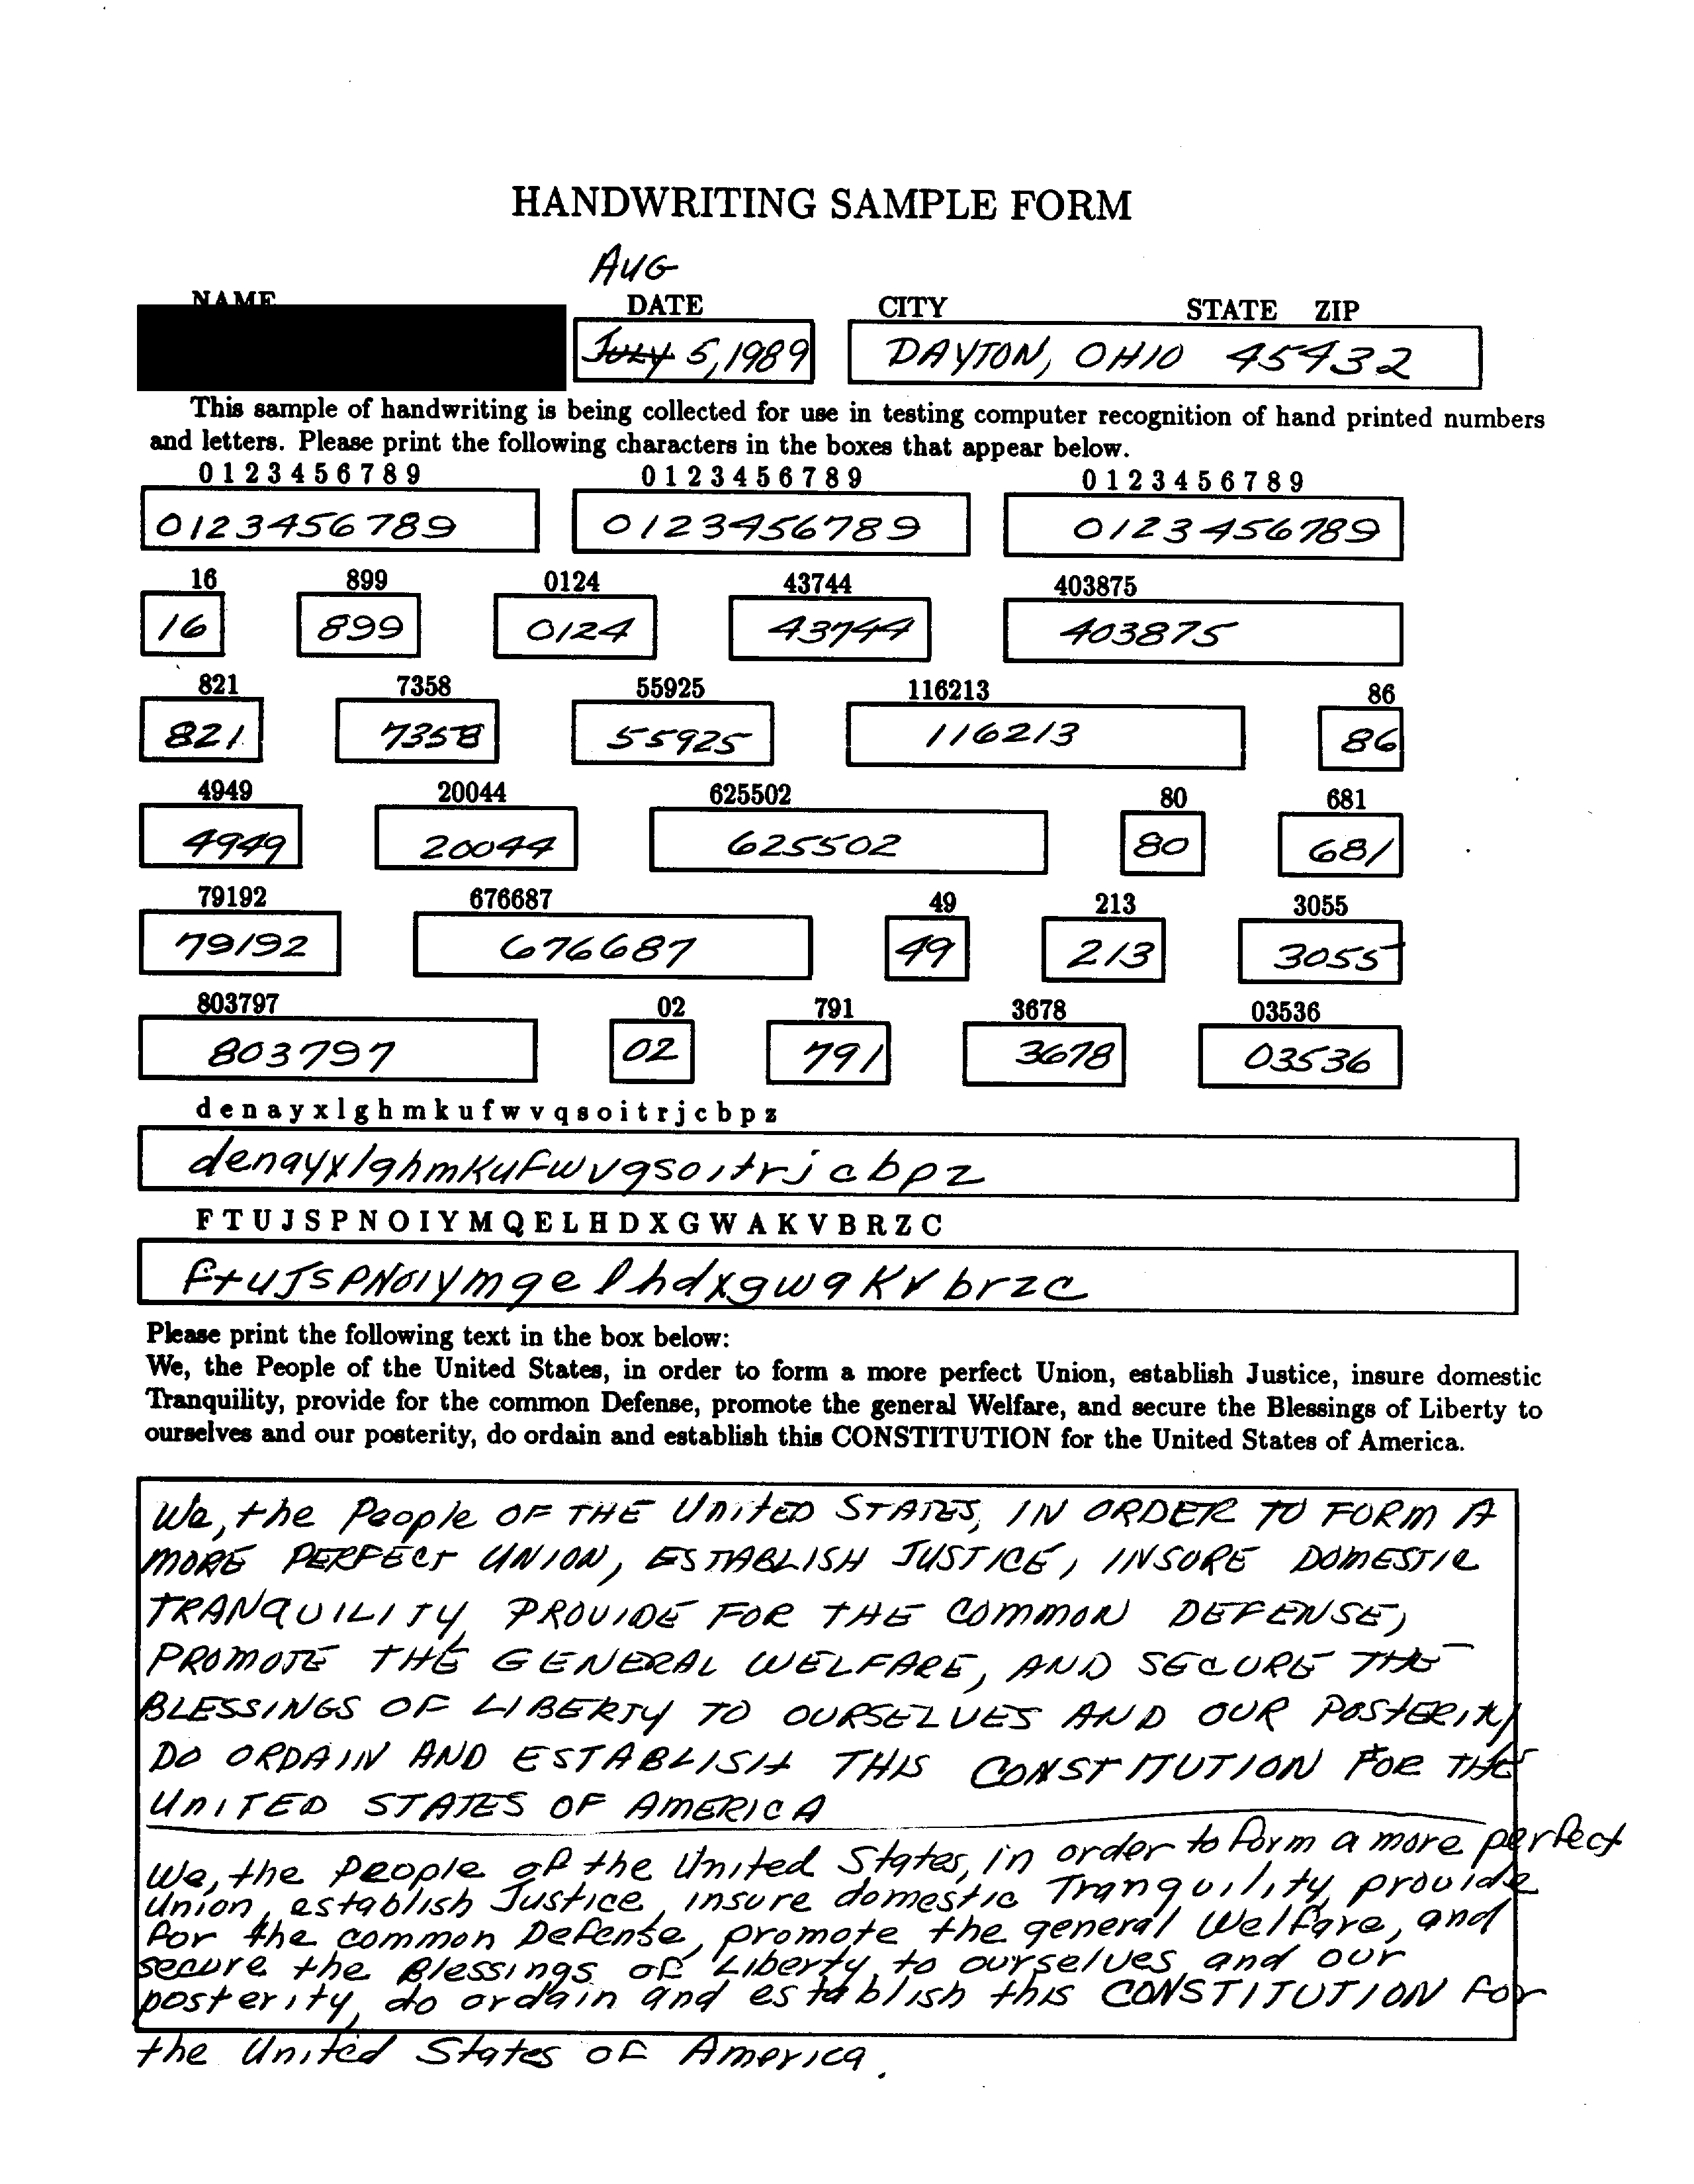 HANDWRITING SAMPLE FORM
AUG
NAME DATE CITY STATE ZIP
July 5, 1989 DAYTON, OHIO 45432
This sample of handwriting is being collected for use in testing computer recognition of hand printed numbers
and letters. Please print the following characters in the boxes that appear below.
0 1 2 3 4 5 6 7 8 9 0 1 2 3 4 5 6 7 8 9 0 1 2 3 4 5 6 7 8 9
0123456789 0123456789 0123456789
16 899 0124 43744 403875
16 899 0124 43744 403875
821 7358 55925 116213 86
821 7358 55925 116213 86
4949 20044 625502 80 681
4949 20044 625502 80 681
79192 676687 49 213 3055
79192 676687 49 213 3055
803797 02 791 3678 03536
803797 02 791 3678 03536
d e n a y x l g h m k u f w v q s o i t r j c b p z
denayxlghmkufwvqsoitrjcbpz
F T U J S P N O I Y M Q E L H D X G W A K V B R Z C
ftuJSPNOIYmqelhdxgwaKVbrzc
Please print the following text in the box below:
We, the People of the United States, in order to form a more perfect Union, establish Justice, insure domestic
Tranquility, provide for the common Defense, promote the general Welfare, and secure the Blessings of Liberty to
ourselves and our posterity, do ordain and establish this CONSTITUTION for the United States of America.
We, the People OF THE UnitED STATES, IN ORDER TO FORM A
MORE PERFECT UNION, ESTABLISH JUSTICE, INSURE DOMESTIC
TRANQUILITY, PROVIDE FOR THE COMMON DEFENSE,
PROMOTE THE GENERAL WELFARE, AND SECURE THE
BLESSINGS OF LIBERTY TO OURSELVES AND OUR POSTERITY,
DO ORDAIN AND ESTABLISH THIS CONSTITUTION FOR THE
UNITED STATES OF AMERICA
We, the People of the United States, in order to form a more perfect
Union, establish Justice, insure domestic Tranquility, provide
for the common Defense, promote the general Welfare, and
secure the Blessings of Liberty to ourselves and our
posterity, do ordain and establish this CONSTITUTION for
the United States of America.